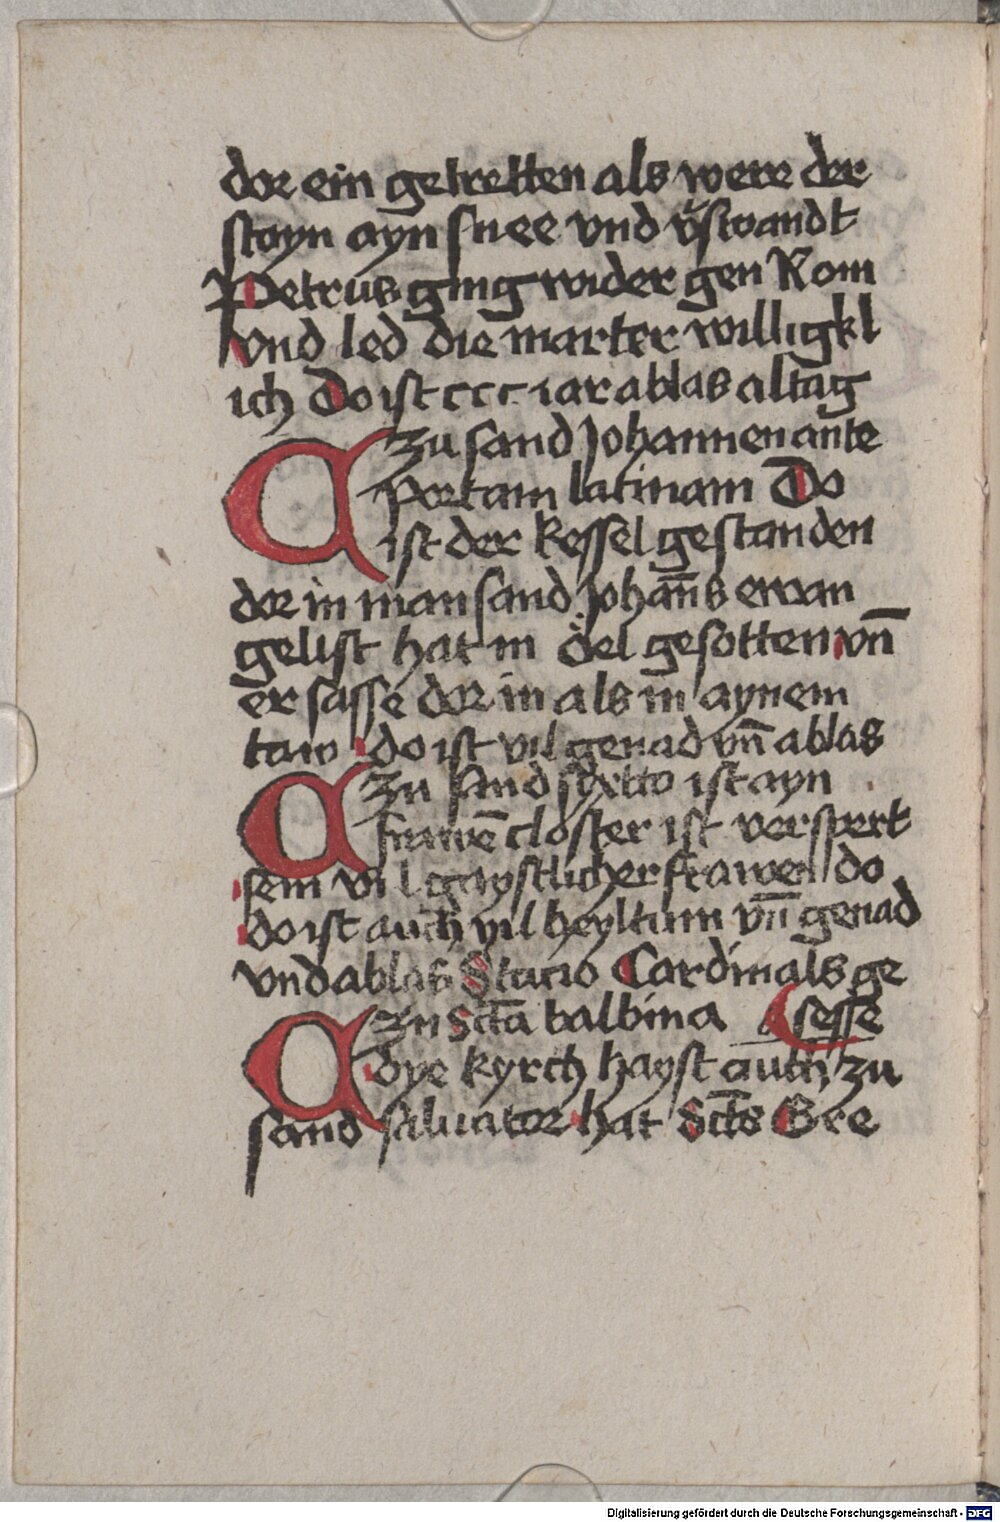 dor ein getretten als were der
stayn ayn snee vnd v̈swandt
Petrus ging wider gen Rom
vnd led die marter willigkl
ich Do ist ccc iar ablas altag
A zu sand Johannen ante
portam latinam Do
ist der kessel gestanden
dor in man sand Johan̄s ewan
gelist hat in öel gesotten vn̄
er sasse dor in als in aynem
taw do ist vil genad vn̄ ablas
A zu sand sixtto ist ayn
frawē closter ist verspert
sein vil gaystlicher frawen do
do ist auch vil heyltum vn̄ genad
vnd ablas Stacio Cardinals ge
A zu Sct̄a balbina sesse
dye kyrch hayst auch zu
sand saluator hat Sct̄s Gre
Digitalisierung gefördert durch die Deutsche Forschungsgemeinschaft - DFG